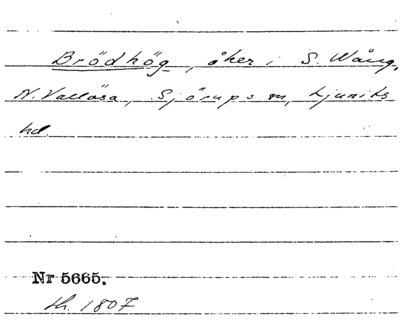 Brödhög, åker i S. Wång,
N. Vallösa, Sjörups sn, Ljunits
hd.
Nr 5665.
sk. 1807